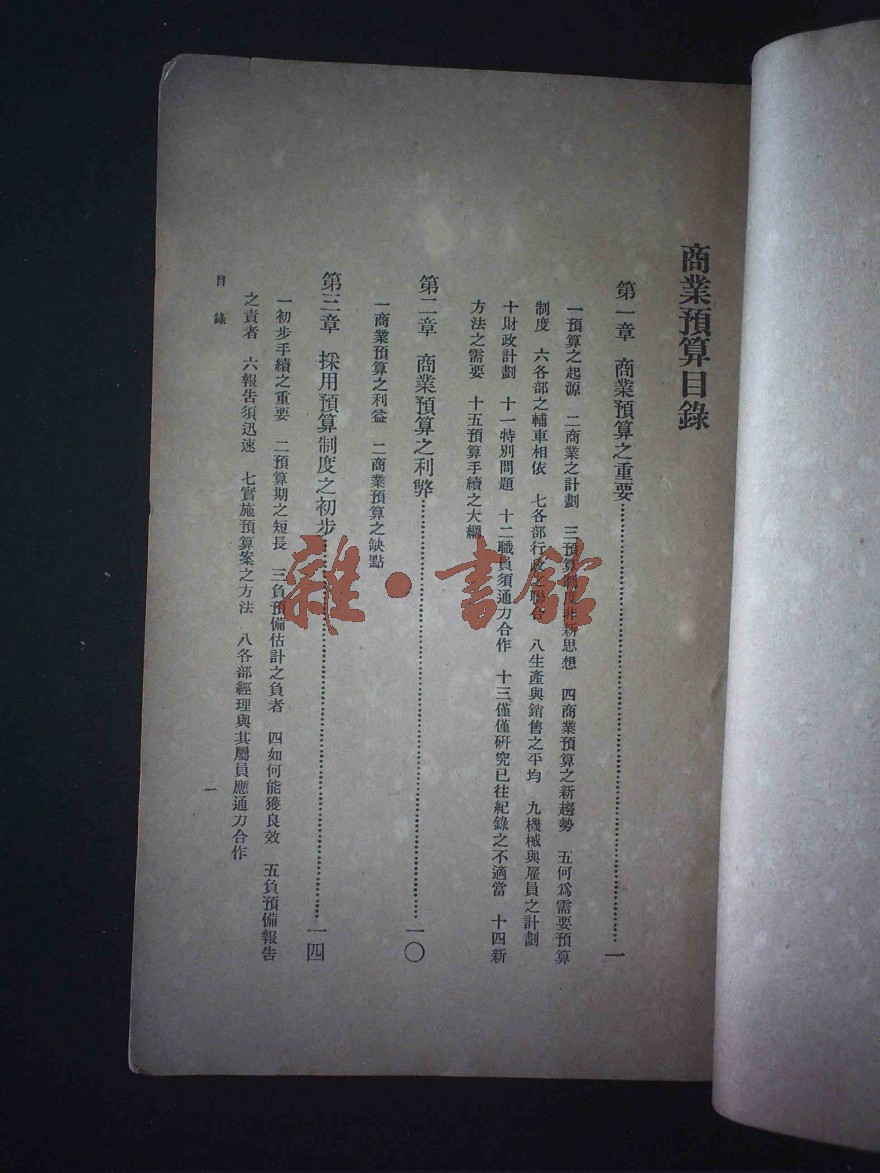 商業預算目錄
第一章　商業預算之重要…………一
一預算之起源　二商業之計劃　三預算制度非新思想　四商業預算之新趨勢　五何爲需要預算
制度　六各部之輔車相依　七各部行政之聯合　八生產與銷售之平均　九機械與雇員之計劃
十財政計劃　十一特別問題　十二職員須通力合作　十三僅僅研究已往紀錄之不適當　十四新
方法之需要　十五預算手續之大綱
第二章　商業預算之利弊…………一〇
一商業預算之利益　二商業預算之缺點
第三章　採用預算制度之初步…………一四
一初步手續之重要　二預算期之短長　三負預備估計之負者　四如何能獲良效　五負預備報告
之責者　六報告須迅速　七實施預算案之方法　八各部經理與其屬員應通力合作
目錄
一
雜·書館